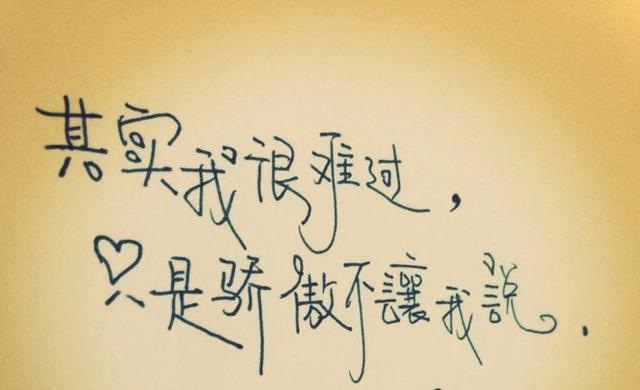 其实我很难过，
只是骄傲不讓我説。